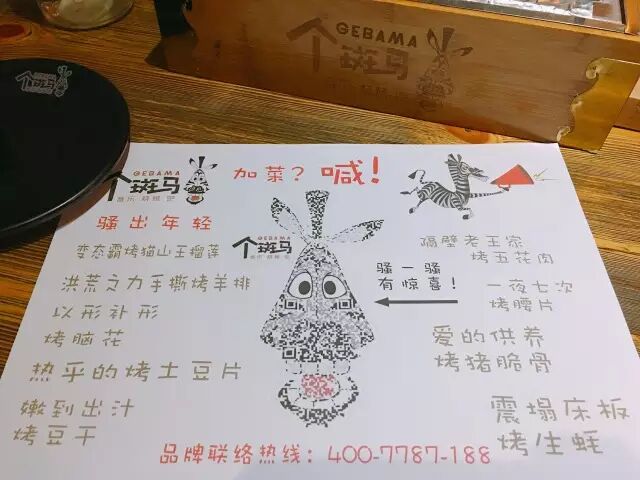 GEBAMA
个斑马
GEBAMA
个斑马
音乐 胡椒吧
加菜？喊！
骚出年轻
变态霸烤猫山王榴莲
洪荒之力手撕烤羊排
以形补形
烤脑花
热乎的烤土豆片
嫩到出汁
烤豆干
个斑马
骚一骚
有惊喜！
隔壁老王家
烤五花肉
一夜七次
烤腰片
爱的供养
烤猪脆骨
震塌床板
烤生蚝
品牌联络热线：400-7787-188